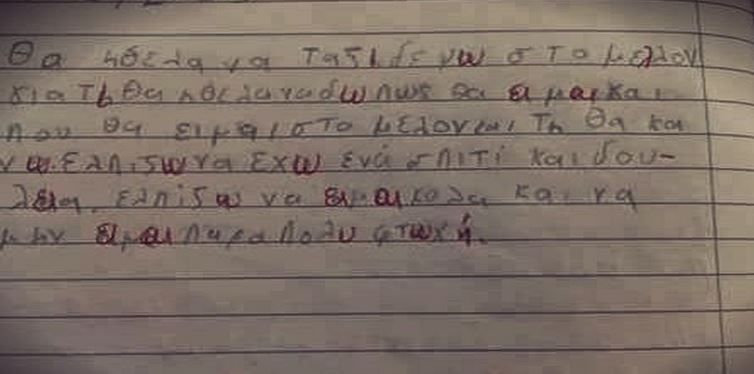 Θα ηθελα να ταξιδεγω στο μελλον
για τη θα ηθελα να δω πως θα ειμαι και
που θα ειμαι στο μελον και τη θα κα
νω. Ελπιζω να εχω ενα σπιτι και δου-
λεια. ελπιζω να ειμαι καλα και να
μην ειμαι παρα πολυ φτωχή.